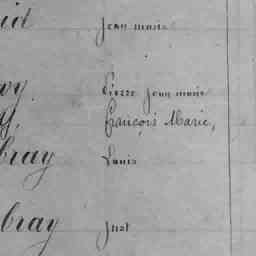 id Jean marie
vy Pierre Jean marie
y, François Marie,
bray Louis
bray Just